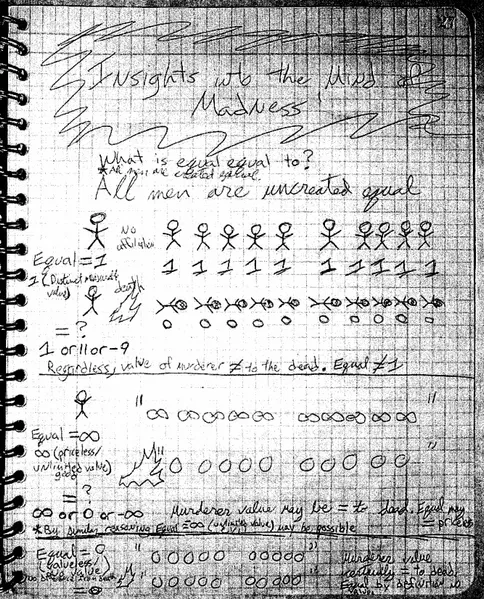 Insights into the Mind of
Madness
What is equal equal to?
*All men are created equal
All men are uncreated equal
NO
Equal = 1
1 1 1 1 1 1 1 1 1
1 (Distinct measurable
value)
death
0 0 0 0 0 0 0 0 0
= ?
1 or 11 or -9
Regardless, value of murderer ≠ to the dead. Equal ≠ 1
" ∞ ∞ ∞ ∞ ∞ ∞ ∞ ∞ ∞ ∞ "
Equal = ∞
∞ (priceless/
unlimited value)
good
" 0 0 0 0 0 0 0 0 0 "
= ?
∞ or 0 or -∞ Murderer value may be = to dead. Equal may
= priceless
*By similar reasoning Equal = -∞ (unlimited value) may be possible
Equal = 0 " 0 0 0 0 0 0 0 0 0 0 " Murderer value
(valueless/
No value) = to dead.
" 0 0 0 0 0 0 0 0 0 0 " Equal by definition is
= 0